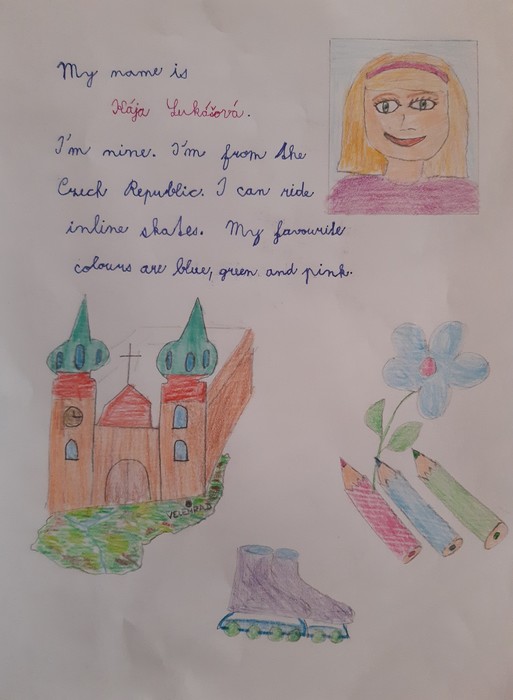 My name is
Kája Lukášová.
I'm nine. I'm from the
Czech Republic. I can ride
inline skates. My favourite
colours are blue, green and pink.
VELEHRAD